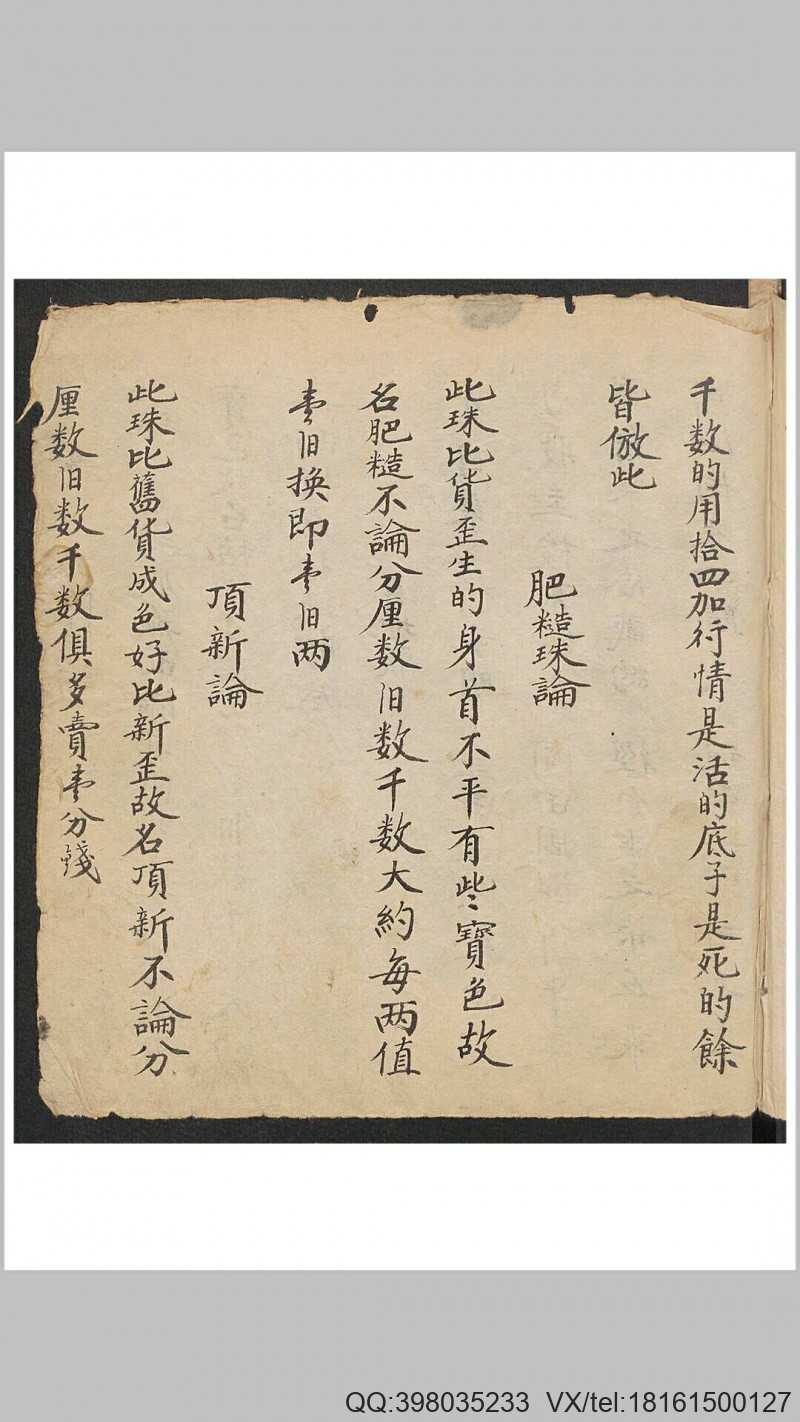 千数的用拾四加行情是活的底子是死的餘
皆倣此
肥糙珠論
此珠比貨歪生的身首不平有些寶色故
名肥糙不論分厘数旧数千数大約每两值
旧換即旧两
頂新論
此珠比舊貨成色好比新歪故名頂新不論分
厘数旧数千数俱多賣分錢
QQ:398035233 VX/tel:18161500127